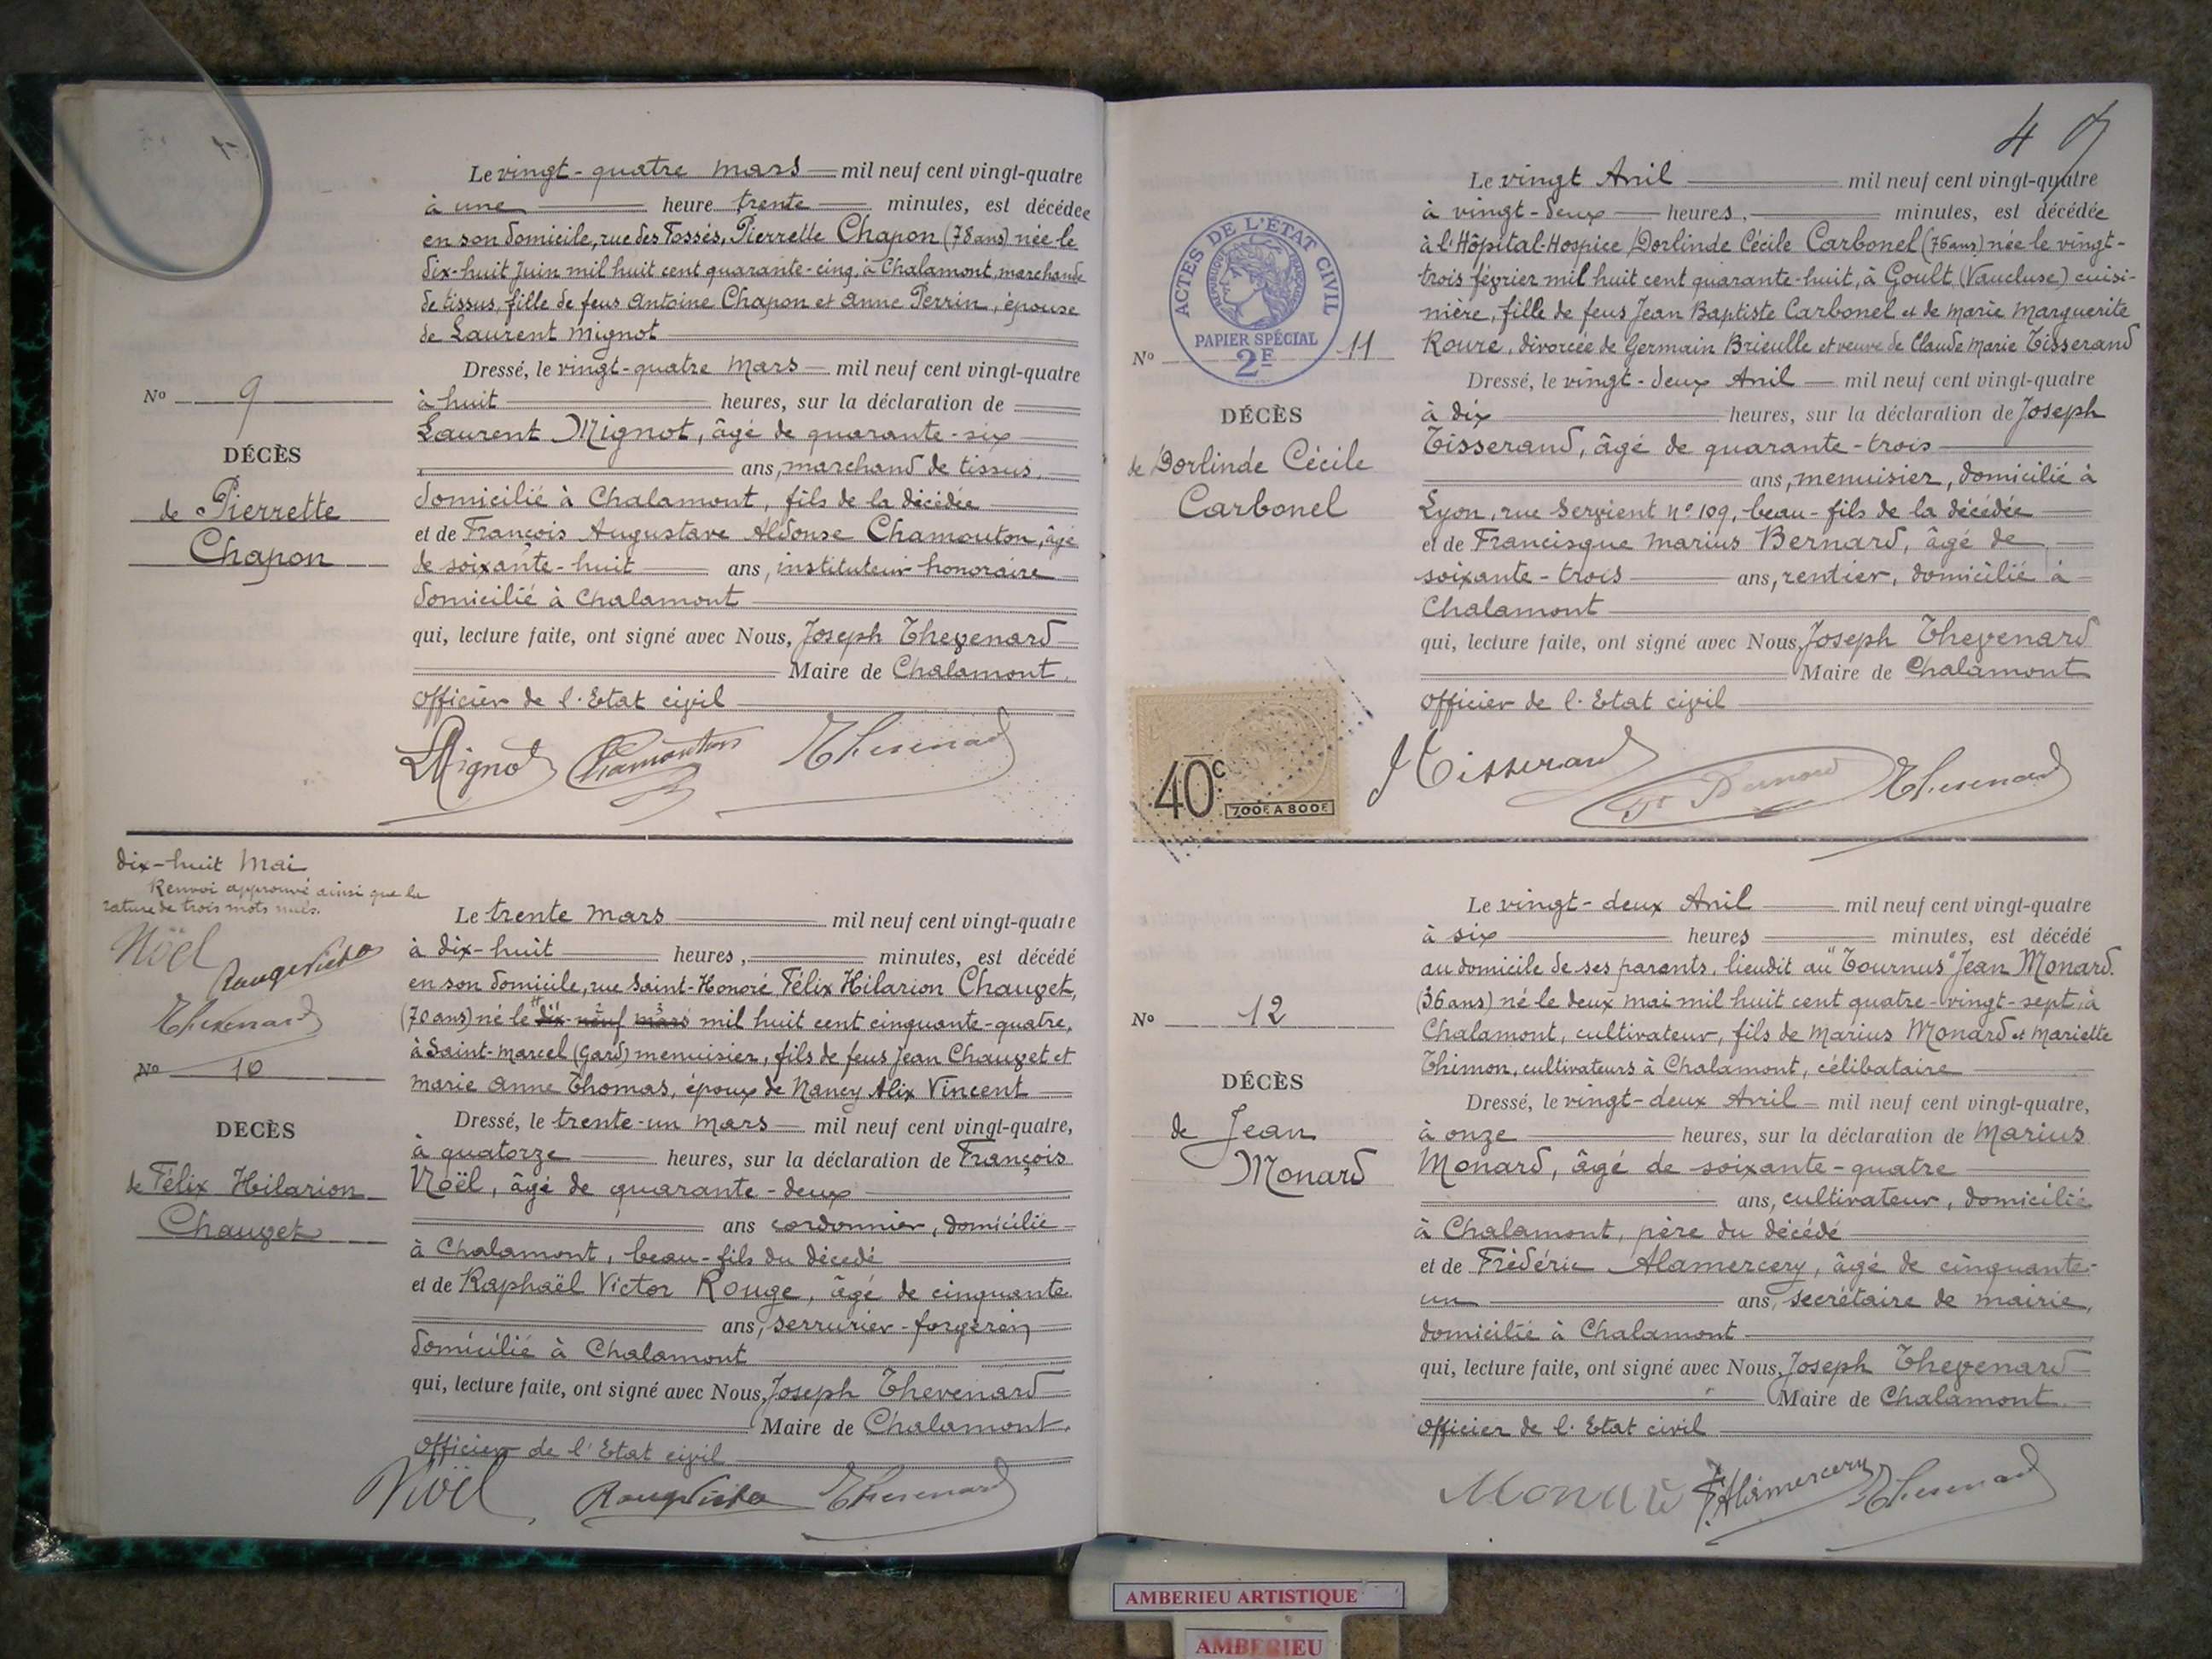 Le vingt-quatre mars mil neuf cent vingt-quatre
à une heure trente minutes, est décédée
en son domicile, rue des Fossés, Pierrette Chapon (78 ans) née le
dix-huit Juin mil huit cent quarante-cinq, à Chalamont, marchande
de tissus, fille de feus Antoine Chapon et Anne Perrin, épouse
de Laurent Mignot
Dressé, le vingt-quatre Mars mil neuf cent vingt-quatre
à huit heures, sur la déclaration de
Laurent Mignot, âgé de quarante-six
ans, marchand de tissus,
domicilié à Chalamont, fils de la décédée
et de François Augustave Aldonse Chamouton, âgé
de soixante-huit ans, instituteur honoraire
domicilié à Chalamont
qui, lecture faite, ont signé avec Nous, Joseph Thevenard
Maire de Chalamont,
Officier de l'Etat civil
LMignot Chamouton Thevenard
No 9
DÉCÈS
de Pierrette
Chapon
dix-huit Mai
Renvoi approuvé ainsi que la
rature de trois mots nuls.
Noël Rouge Victor
Thevenard
No 10
DECÈS
de Félix Hilarion
Chauvet
Le trente mars mil neuf cent vingt-quatre
à dix-huit heures, minutes, est décédé
en son domicile, rue Saint-Honoré, Félix Hilarion Chauvet,
(70 ans) né le dix-neuf mars mil huit cent cinquante-quatre,
à Saint-Marcel (Gard) menuisier, fils de feus Jean Chauvet et
Marie Anne Thomas, époux de Nancy Alix Vincent
Dressé, le trente-un Mars mil neuf cent vingt-quatre,
à quatorze heures, sur la déclaration de François
Noël, âgé de quarante-deux
ans cordonnier, domicilié
à Chalamont, beau-fils du décedé
et de Raphaël Victor Rouge, âgé de cinquante
ans, serrurier-forgeron
domicilié à Chalamont
qui, lecture faite, ont signé avec Nous, Joseph Thevenard
Maire de Chalamont,
Officier de l'Etat civil
Noël Rouge Victor Thevenard
4
Le vingt Avril mil neuf cent vingt-quatre
à vingt-deux heures, minutes, est décédée
à l'Hôpital-Hospice, Dorlinde Cécile Carbonel (76 ans) née le vingt-
trois février mil huit cent quarante-huit, à Goult (Vaucluse) cuisi-
nière, fille de feus Jean Baptiste Carbonel et de Marie Marguerite
Roure, divorcée de Germain Brieulle et veuve de Claude Marie Tisserand
Dressé, le vingt-deux Avril mil neuf cent vingt-quatre
à dix heures, sur la déclaration de Joseph
Tisserand, âgé de quarante-trois
ans, menuisier, domicilié à
Lyon, rue Servient n° 109, beau-fils de la décédée
et de Francisque Marius Bernard, âgé de
soixante-trois ans, rentier, domicilié à
Chalamont
qui, lecture faite, ont signé avec Nous, Joseph Thevenard
Maire de Chalamont
Officier de l'Etat civil
JTisserand Fs Bernard Thevenard
ACTES DE L'ÉTAT CIVIL
REPUBLIQUE FRANÇAISE
PAPIER SPÉCIAL
2F
No 11
DÉCÈS
de Dorlinde Cécile
Carbonel
40c
700F A 800F
Le vingt-deux Avril mil neuf cent vingt-quatre
à six heures minutes, est décédé
au domicile de ses parents, lieudit au "Tournus" Jean Monard.
(36 ans) né le deux mai mil huit cent quatre-vingt-sept, à
Chalamont, cultivateur, fils de Marius Monard et Mariette
Thimon, cultivateurs à Chalamont, célibataire
Dressé, le vingt-deux Avril mil neuf cent vingt-quatre,
à onze heures, sur la déclaration de Marius
Monard, âgé de soixante-quatre
ans, cultivateur, domicilié
à Chalamont, père du décédé
et de Frédéric Alamercery, âgé de cinquante-
un ans, secrétaire de mairie,
domicilié à Chalamont
qui, lecture faite, ont signé avec Nous, Joseph Thevenard
Maire de Chalamont
Officier de l'Etat civil
Monard F.Alamercery Thevenard
No 12
DÉCÈS
de Jean
Monard
AMBERIEU ARTISTIQUE
AMBERIEU